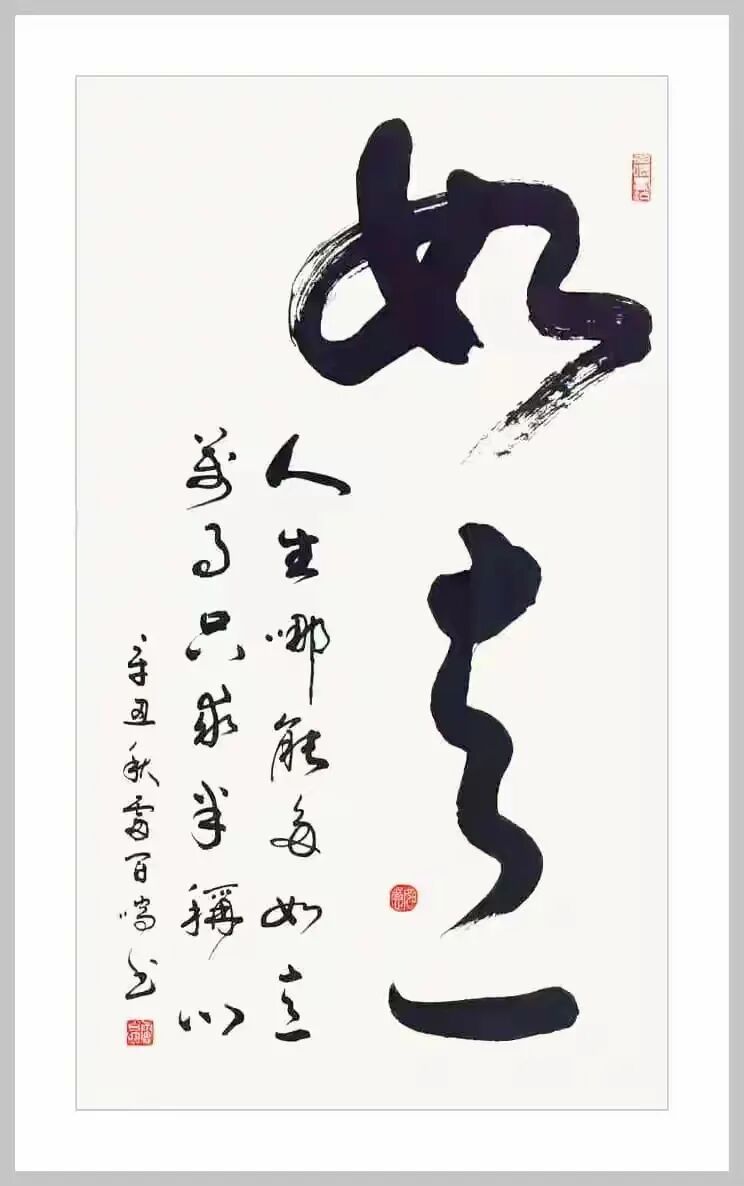 如意
人生哪能多如意
萬事只求半稱心
辛丑秋雷百鳴書